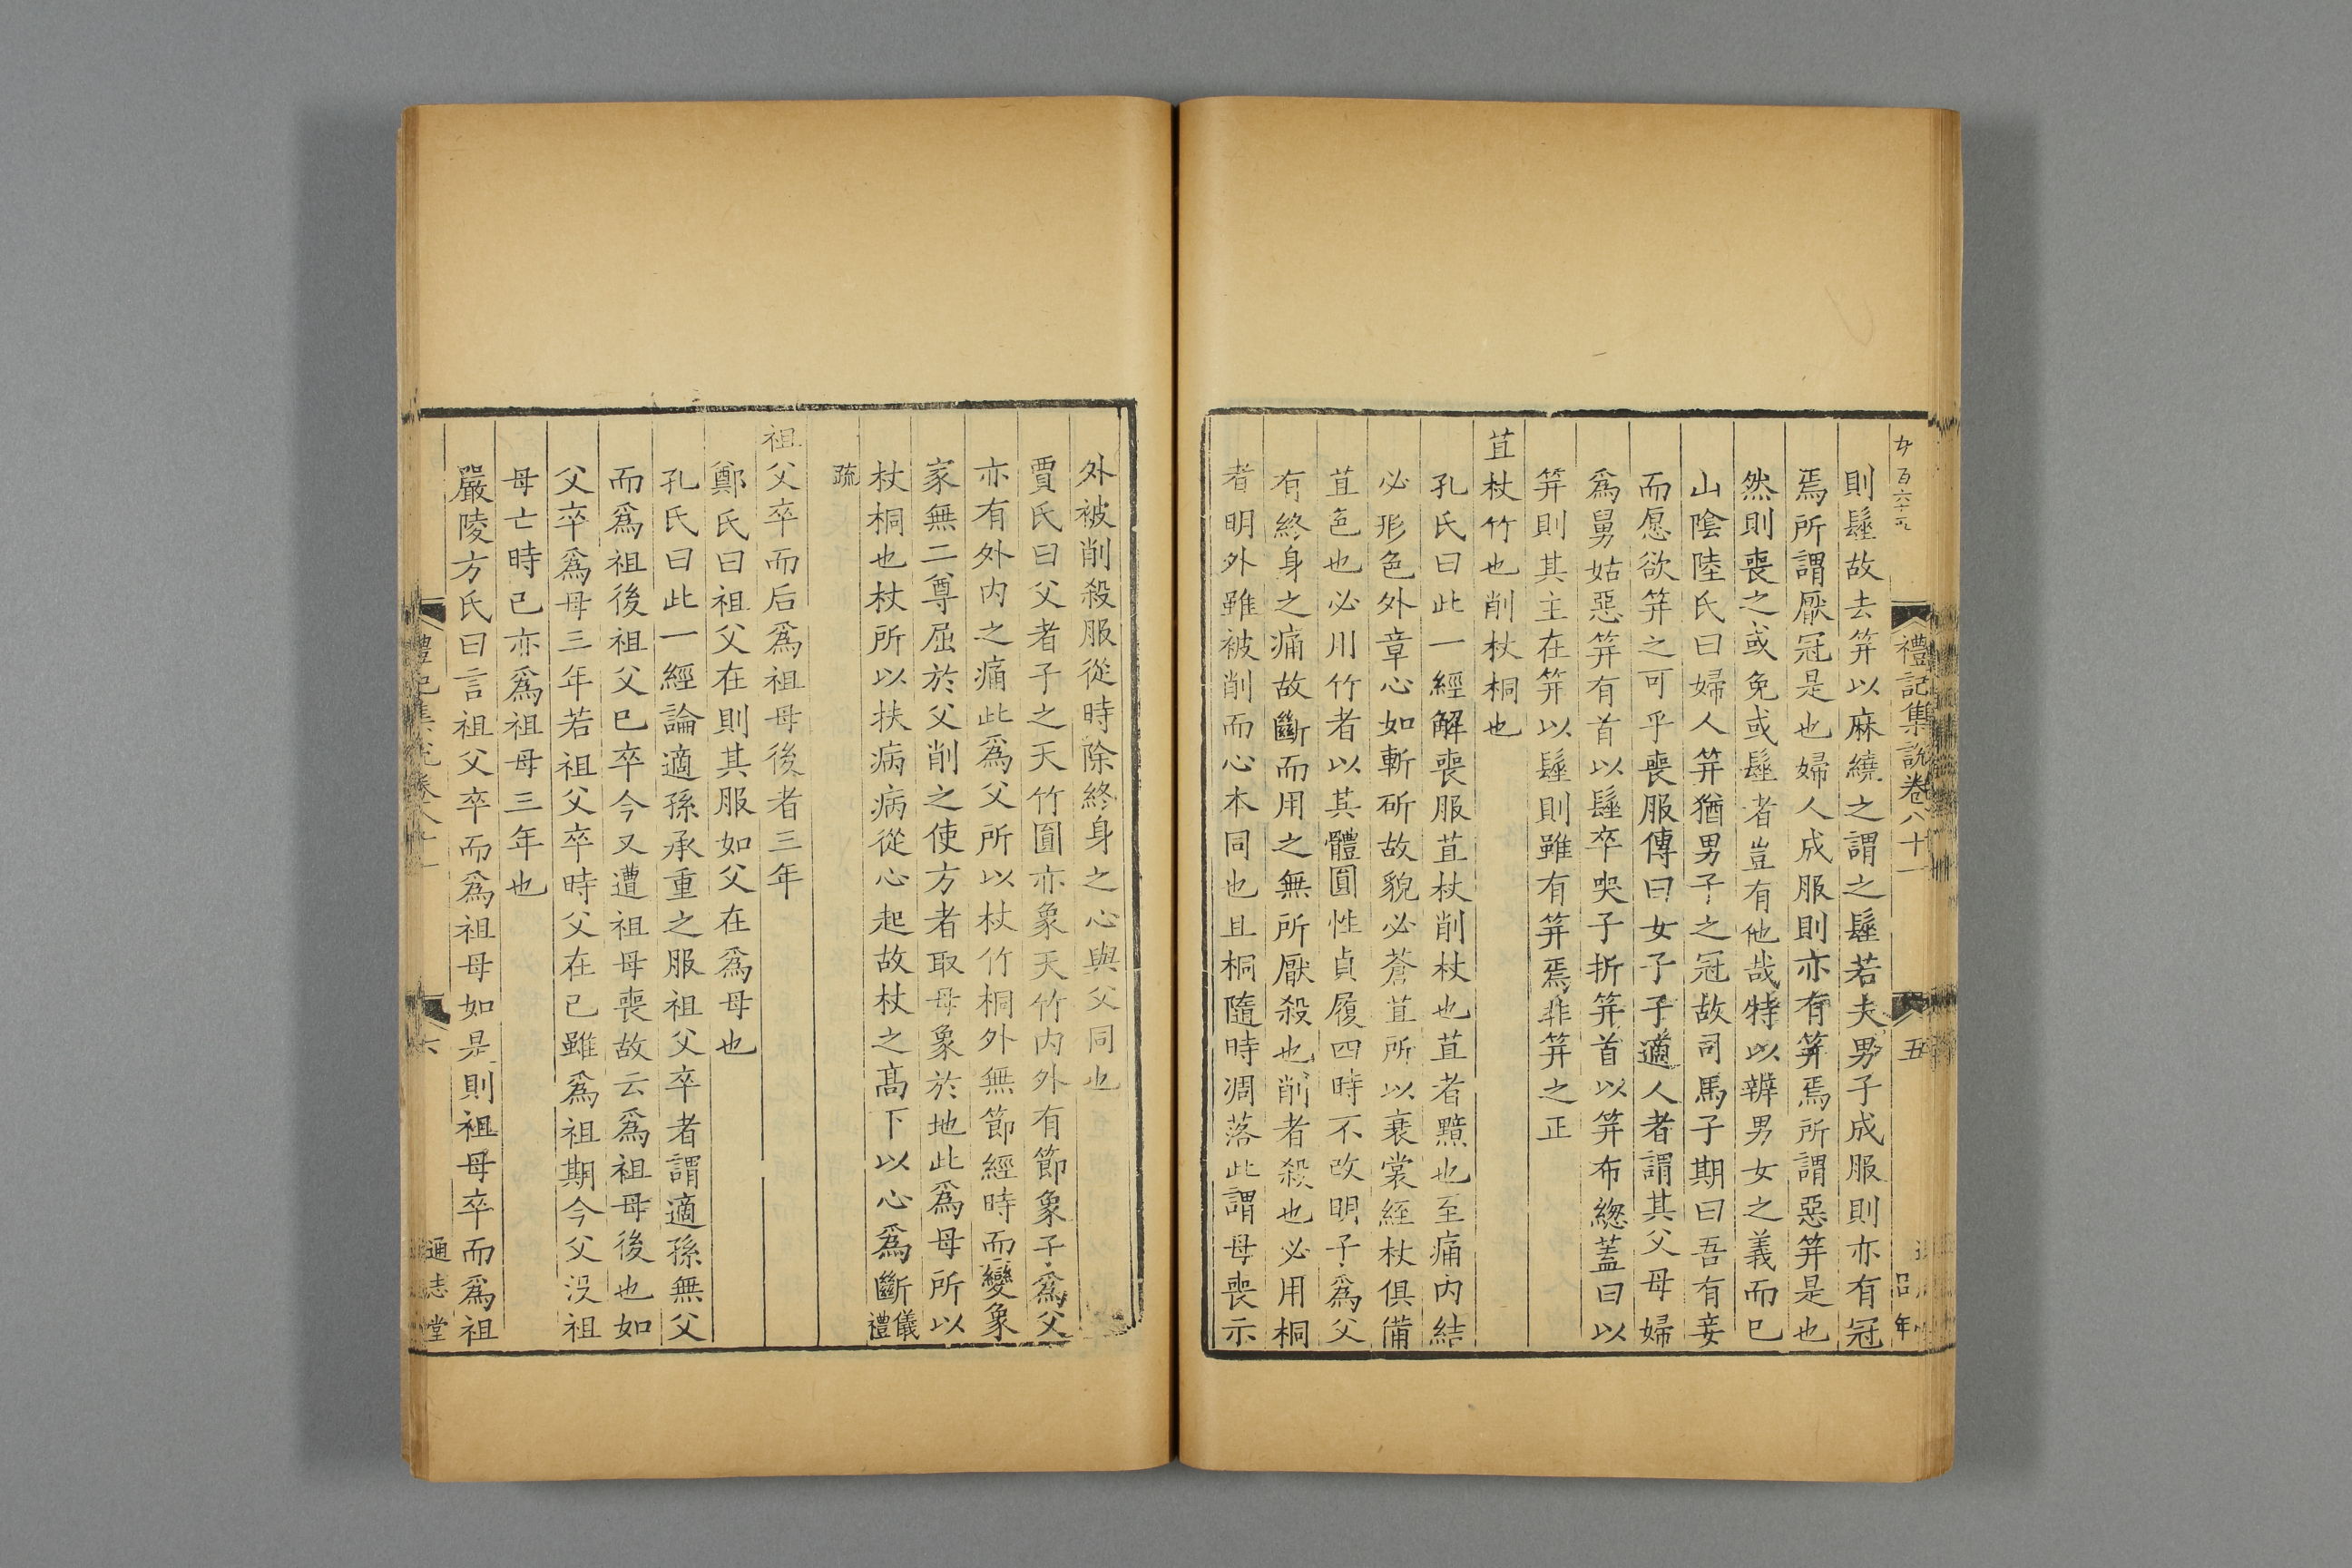 禮記集說卷八十一
五
則髽故去笄以麻繞之謂之髽若夫男子成服則亦有冠
焉所謂厭冠是也婦人成服則亦有笄焉所謂惡笄是也
然則喪之或免或髽者豈有他哉特以辨男女之義而已
山陰陸氏曰婦人笄猶男子之冠故司馬子期曰吾有妾
而愿欲笄之可乎喪服傳曰女子子適人者謂其父母婦
爲舅姑惡笄有首以髽卒哭子折笄首以笄布緫蓋曰以
笄則其主在笄以髽則雖有笄焉非笄之正
苴杖竹也削杖桐也
孔氏曰此一經解喪服苴杖削杖也苴者黯也至痛内結
必形色外章心如斬斫故貌必蒼苴所以衰裳絰杖俱備
苴色也必用竹者以其體圓性貞履四時不改明子爲父
有終身之痛故斷而用之無所厭殺也削者殺也必用桐
者明外雖被削而心本同也且桐隨時凋落此謂母喪示
外被削殺服從時除終身之心與父同也
賈氏曰父者子之天竹圓亦象天竹内外有節象子爲父
亦有外内之痛此爲父所以杖竹桐外無節經時而變象
家無二尊屈於父削之使方者取母象於地此爲母所以
杖桐也杖所以扶病病從心起故杖之高下以心爲斷儀禮
疏
祖父卒而后爲祖母後者三年
鄭氏曰祖父在則其服如父在爲母也
孔氏曰此一經論適孫承重之服祖父卒者謂適孫無父
而爲祖後祖父已卒今又遭祖母喪故云爲祖母後也如
父卒爲母三年若祖父卒時父在已雖爲祖期今父沒祖
母亡時已亦爲祖母三年也
嚴陵方氏曰言祖父卒而爲祖母如是則祖母卒而爲祖
禮記集說卷八十一
六
通志堂